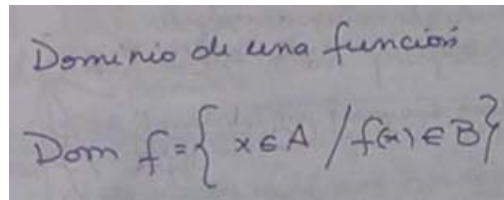 Dominio de una función
Dom f = { x ∈ A / f(x) ∈ B }